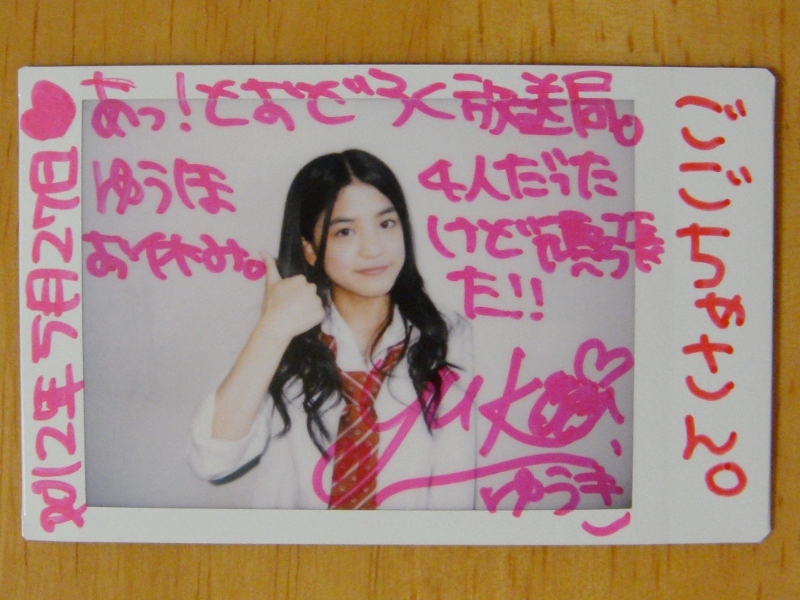 あっ!とおどろく放送局。
ゆうほ
お休み。
4人だった
けど頑張
た!!
ゆうき
ごごちゃん。
2012年5月27日